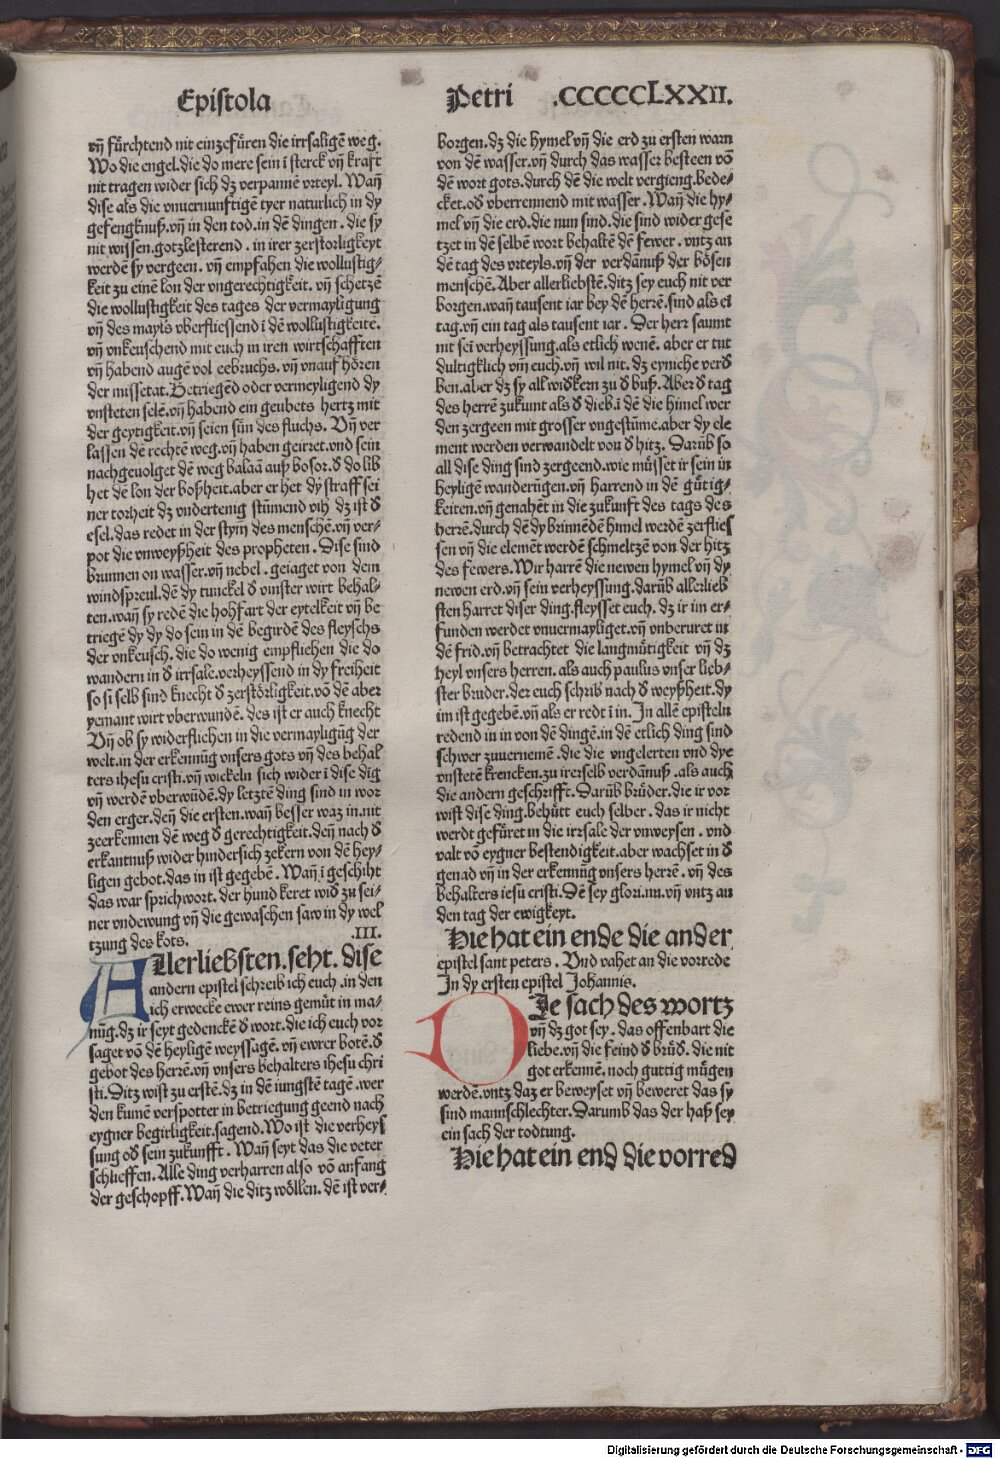 Epistola
Petri .CCCCCLXXII.
vñ fürchtend nit einzefüren die irrsaligē weg.
Wo die engel.die do mere sein ī sterck vñ kraft
nit tragen wider sich dz verpannē vrteyl. Wañ
dise als die vnuernunftige tyer naturlich in dy
gefengknuß.vñ in den tod.in dē dingen. die sy
nit wissen.gotzlesterend. in irer zerstorligkeyt
werdē sy vergeen. vñ empfahen die wollustig⸗
keit zu einē lon der vngerechtigkeit. vñ schetzē
die wollustigkeit des tages der vermayligung
vñ des mayls vberfliessend ī dē wollustigkeitē.
vñ vnkeuschend mit euch in iren wirtschafften
vñ habend augē vol eebruchs. vñ vnauf hören
der missetat. Betriegēd oder vermeyligend dy
vnsteten selē.vñ habend ein geubets hertz mit
der geytigkeit.vñ seien sün des fluchs. Vñ ver
lassen dē rechtē weg.vñ haben geirret.vnd sein
nachgeuolget dē weg balaā auß bosor.d̄ do lib
het dē lon der boßheit.aber er het dy straff sei
ner torheit dz vndertenig stūmend vih dz ist d̄
esel.das redet in der stym̄ des menschē.vñ ver⸗
pot die vnweyßheit des propheten. Dise sind
brunnen on wasser.vñ nebel. geiaget von dem
windspreul.dē dy tunckel d̄ vinster wirt behal⸗
ten.wañ sy redē die hohfart der eytelkeit vñ be
triegē dy dy do sein in dē begirdē des fleyschs
der vnkeusch. die do wenig empfliehen die do
wandern in d̄ irrsale.verheyssend in dy freiheit
so si selb sind knecht d̄ zerstörligkeit.vō dē aber
yemant wirt vberwundē. des ist er auch knecht
Vñ ob sy widerfliehen in die vermayligūg der
welt.in der erkennūg vnsers gots vñ des behal
ters ihesu cristi.vñ wickeln sich wider ī dise dīg
vñ werdē vberwūdē.dy letztē ding sind in wor
den erger.deñ die ersten.wañ besser waz in.nit
zeerkennen dē weg d̄ gerechtigkeit.deñ nach d̄
erkantnuß wider hindersich zekern von dē hey⸗
ligen gebot.das in ist gegebē. Wañ ī geschiht
das war sprichwort. der hund keret wid̄ zu sei⸗
ner vndewung vñ die gewaschen saw in dy wel
tzung des kots. .III.
Allerliebsten.seht. dise
andern epistel schreib ich euch. in den
ich erwecke ewer reins gemüt in ma⸗
nūg.dz ir seyt gedenckē d̄ wort.die ich euch vor
saget vō dē heyligē weyssagē. vñ ewrer botē.d̄
gebot des herrē.vñ vnsers behalters ihesu chri
sti. Ditz wist zu erstē.dz in dē iungstē tagē.wer
den kumē verspotter in betriegung geend nach
eygner begirligkeit.sagend. Wo ist die verheys
sung od̄ sein zukunfft. Wañ seyt das die veter
schlieffen. Alle ding verharren also vō anfang
der geschopff. Wañ die ditz wöllen. dē ist ver⸗
borgen.dz die hymel vñ die erd zu ersten warn
von dē wasser.vñ durch das wasser besteen vō
dē wort gots.durch dē die welt vergieng.bede⸗
cket.od̄ vberrennend mit wasser. Wañ die hy⸗
mel vñ die erd.die nun sind.die sind wider gese
tzet in dē selbē wort behaltē dē fewer. vntz an
dē tag des vrteyls.vñ der verdānuß der bösen
menschē. Aber allerliebstē.ditz sey euch nit ver
borgen.wañ tausent iar bey dē herrē.sind als eī
tag.vñ ein tag als tausent iar. Der herr saumt
nit seī verheyssung.als etlich wenē. aber er tut
dultigklich vm̄ euch.vñ wil nit.dz eyniche verd̄
ben.aber dz sy all wid̄kern zu d̄ buß. Aber d̄ tag
des herrē zukumt als d̄ dieb.ī dē die himel wer
den zergeen mit grosser vngestüme.aber dy ele
ment werden verwandelt von d̄ hitz. Darūb so
all dise ding sind zergeend.wie müsset ir sein in
heyligē wanderūgen.vñ harrend in dē gütig⸗
keiten.vñ genahēt in die zukunft des tags des
herrē.durch dē dy brinnēdē himel werdē zerflies
sen vñ die elemēt werdē schmeltzē von der hitz
des fewers. Wir harrē die newen hymel vñ dy
newen erd.vñ sein verheyssung.darūb allerlieb
sten harret diser ding.fleysset euch. dz ir im er⸗
funden werdet vnuermayliget.vñ vnberuret in
dē frid.vñ betrachtet die langmütigkeit vñ dz
heyl vnsers herren. als auch paulus vnser lieb⸗
ster bruder.der euch schrib nach d̄ weyßheit.dy
im ist gegebē.vñ als er redt ī in. In allē episteln
redend in in von dē dingē.in dē etlich ding sind
schwer zuuernemē.die die vngelerten vnd dye
vnstetē krencken.zu irerselb verdānuß.als auch
die andern geschrifft. Darūb brüder.die ir vor
wist dise ding.behütt euch selber. das ir nicht
werdt gefüret in die irrsale der vnweysen. vnd
valt vō eygner bestendigkeit.aber wachset in d̄
genad vñ in der erkennūg vnsers herrē. vñ des
behalters iesu cristi. Dē sey glori.nu.vñ vntz an
den tag der ewigkeyt.
Hie hat ein ende die ander
epistel sant peters. Vnd vahet an die vorrede
In dy ersten epistel Johannis.
Die sach des wortz
vñ dz got sey. das offenbart die
liebe.vñ die feind d̄ brüd̄. die nit
got erkennē. noch guttig mügen
werdē.vntz daz er beweyset vñ beweret das sy
sind mannschlechter. Darumb das der haß sey
ein sach der todtung.
Hie hat ein end die vorred
Digitalisierung gefördert durch die Deutsche Forschungsgemeinschaft - DFG